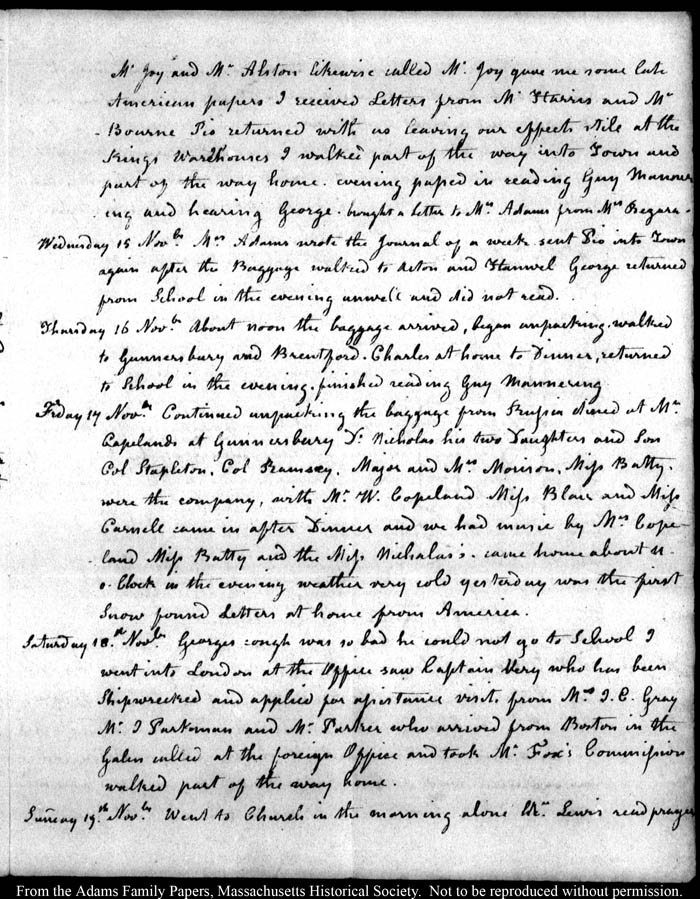 Mr. Joy and Mr. Alston likewise called Mr. Joy gave me some late
American papers I received Letters from Mr Harris and Mr
Bourne Pio returned with us leaving our effects stile at the
Kings Warehouses I walked part of the way into Town and
part of the way home. evening passed in reading Guy Manner
ing and hearing George. bought a Letter to Mrs Adams from Mrs
Wednesday 15 Novbr. Mrs Adams wrote the Journal of a week sent Pio into Town
again after the Baggage walked to Acton and Hanwel George returned
from School in the evening unwell and did not read.
Thursday 16 Novbr About noon the baggage arrived, began unpacking. walked
to Gunnersbury and Brentford. Charles at home to Dinner, returned
to School in the evening. finished reading Guy Mannering
Friday 17 Novbr Continued unpacking the baggage from Russia dined at Mr.
Copelands at Gunnersbury Dr. Nicholas his two Daughters and Son
Col Stapleton, Col Ramsey, Major and Mrs Morison, Miss Batty.
were the company, with Mr. W. Copeland Miss Blair and Miss
Carnell came in after Dinner and we had music by Mrs Cope-
land Miss Batty and the Miss Nichalas's. came home about 11.
o. Clock in the evening weather very cold yesterday was the first
Snow found Letters at home from America.
Saturday 18.th Novbr Georges cough was so bad he could not go to School I
went into London at the Office saw Captain Very who has been
Shipwrecked and applied for assistance visits from Mr J. C. Gray
Mr. J Parkman and Mr. Parker who arrived from Boston in the
Galen called at the foreign Office and took Mr. Fox's Commission
walked part of the way home.
Sunday 19.th Novbr Went to Church in the morning alone Mr. Lewis read prayers
From the Adams Family Papers, Massachusetts Historical Society. Not to be reproduced without permission.